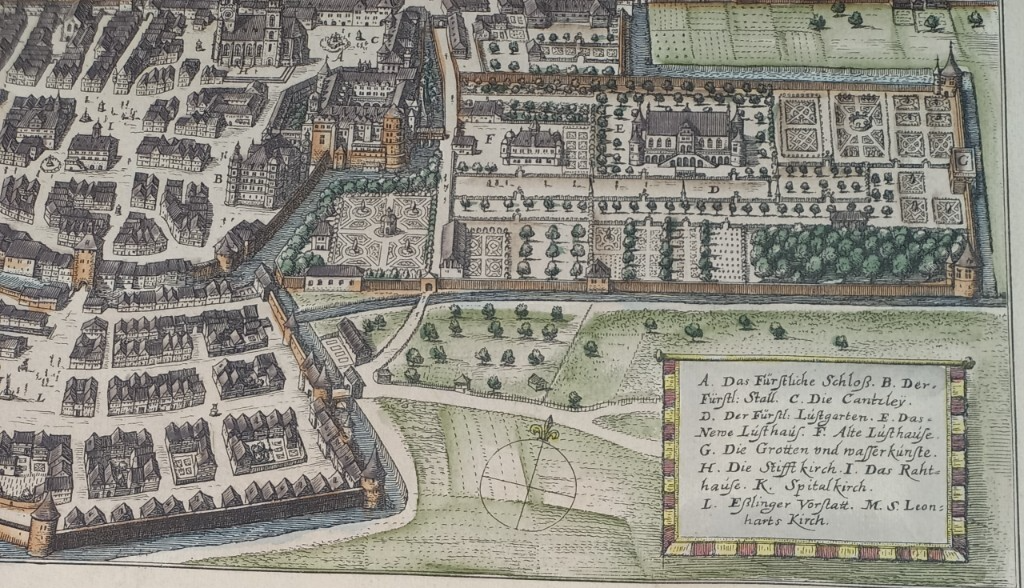 C
L
L
B
F
E
D
G
L
A. Das Fürstliche Schloß. B. Der-
Fürstl: Stall. C. Die Cantzley.
D. Der Fürstl: Lustgarten. E. Das-
Newe Lusthauß. F. Alte Lusthäuse.
G. Die Grotten vnd wasserkünste.
H. Die Stifft kirch. I. Das Raht-
hauße. K. Spitalkirch.
L. Eßlinger Vorstatt. M. S. Leon-
harts Kirch.